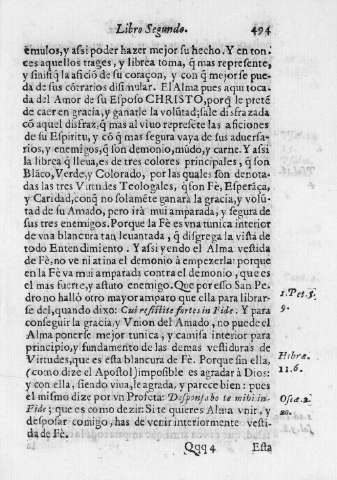 Libro Segundo. 494
èmulos, y assi poder hazer mejor su hecho. Y en ton-
ces aquellos trages, y librea toma, q̃ mas represente,
y sinifiq̃ la aficiõ de su coraçon, y con q̃ mejor se pue-
da de sus cõtrarios dissimular. El Alma pues aqui toca-
da del Amor de su Esposo CHRISTO, porq̃ le pretẽ-
de caer en gracia, y ganarle la volũtad; sale disfrazada
cõ aquel disfraz, q̃ mas al vivo represẽte las aficiones
de su Espiritu, y cõ q̃ mas segura vaya de sus adversa-
rios, y enemigos, q̃ son demonio, mũdo, y carne. Y assi
la librea q̃ lleva, es de tres colores principales, q̃ son
Blãco, Verde, y Colorado, por las quales son denota-
das las tres Virtudes Teologales, q̃ son Fè, Esperãça,
y Caridad, conq̃ no solamẽte ganarà la gracia, y volũ-
tad de su Amado, pero irà mui amparada, y segura de
sus tres enemigos. Porque la Fè es vna tunica interior
de vna blancura tan levantada, q̃ disgrega la vista de
todo Entendimiento. Y assi yendo el Alma vestida
de Fè, no ve ni atina el demonio à empezerla: porque
en la Fè va mui amparada contra el demonio, que es
el mas fuerte, y astuto enemigo. Que por esso San Pe-
dro no hallò otro mayor amparo que ella para librar-
se del, quando dixo: Cui resistite fortes in Fide. Y para
conseguir la gracia, y Vnion del Amado, no puede el
Alma ponerse mejor tunica, y camisa interior para
principio, y fundamento de las demas vestiduras de
Virtudes, que es esta blancura de Fè. Porque sin ella,
(como dize el Apostol) imposible es agradar à Dios:
y con ella, siendo viva, le agrada, y parece bien: pues
èl mismo dize por vn Profeta: Desponsabo te mihi in
Fide; que es como dezir: Si te quieres Alma vnir, y
desposar comigo, has de venir interiormente vesti-
da de Fè.
1. Pet. 5.
9.
Hebræ.
11. 6.
Oseæ. 2.
20.
Qqq 4 Esta